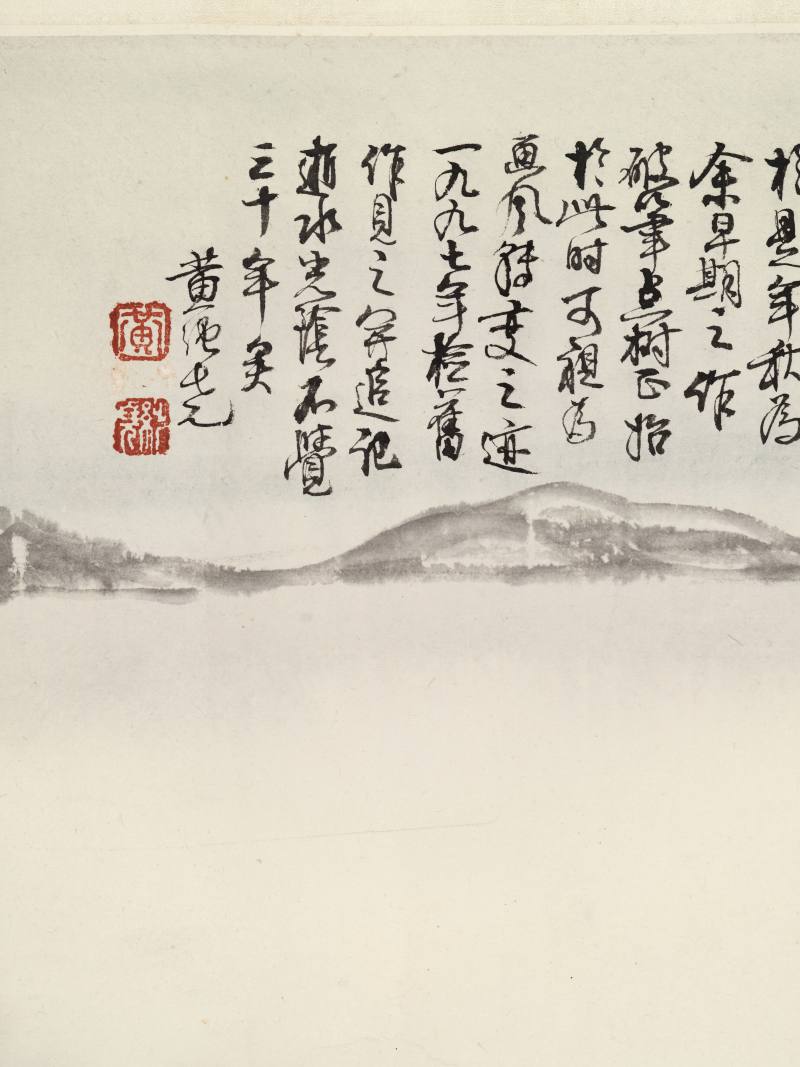 於是年秋為
余早期之作
破筆点樹正始
於此时可視為
画風轉變之迹
一九九七年檢舊
作見之并追記
逝水光陰不覺
三十年矣
黄
黃